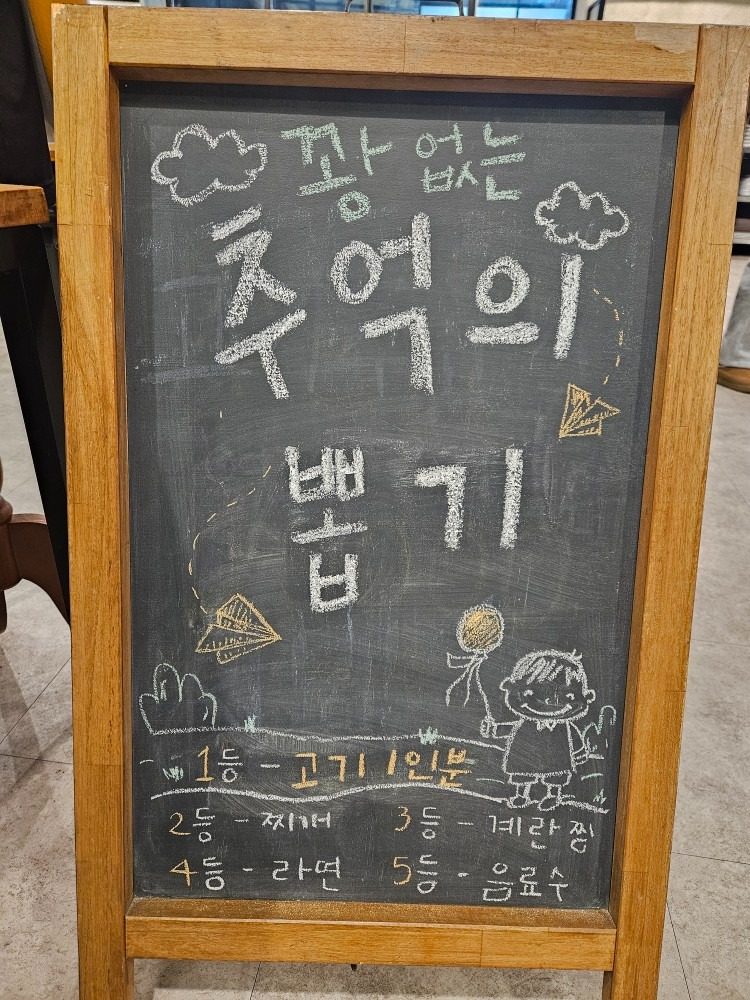 꽝 없는
추억의
뽑기
1등 - 고기 1인분
2등 - 찌개 3등 - 계란찜
4등 - 라면 5등 - 음료수